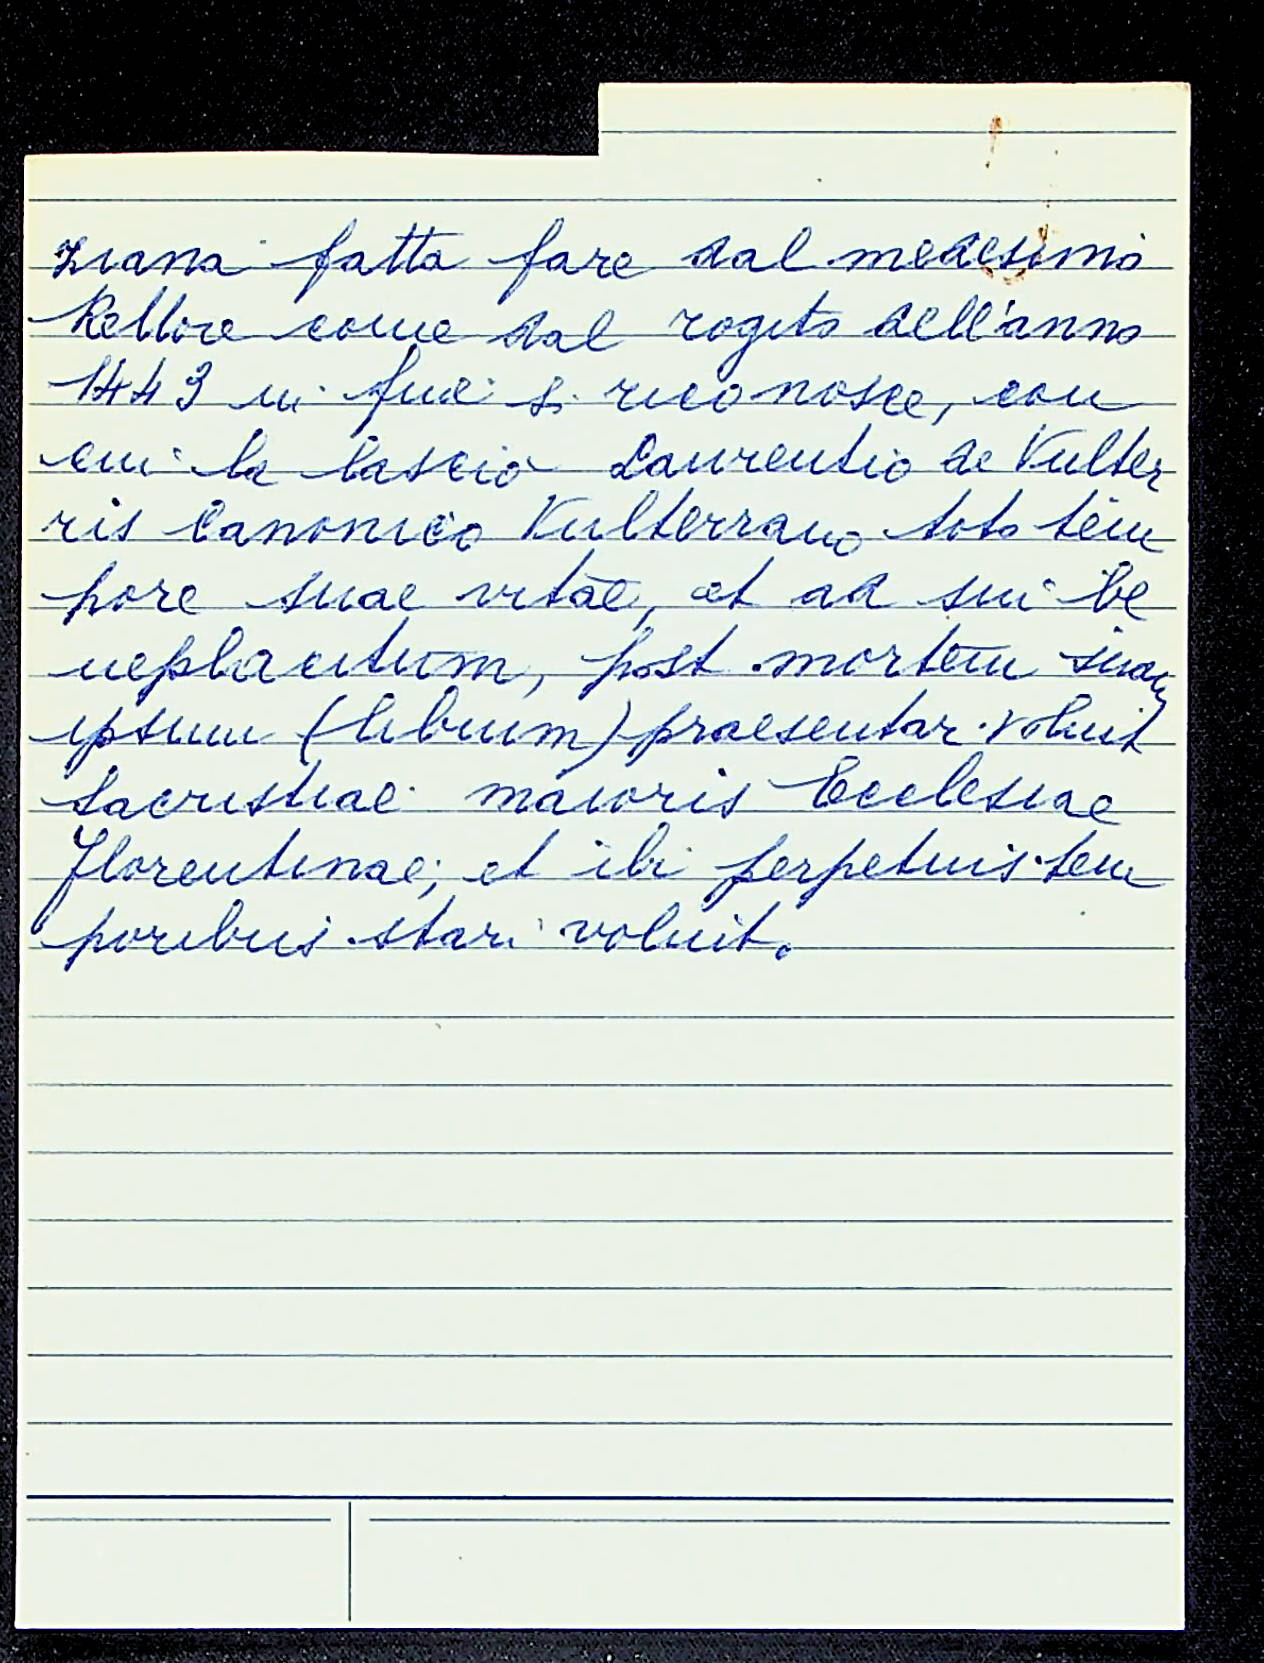 ziana fatta fare dal medesimo
Rettore come dal rogito dell'anno
1443 in fine si riconosce, con
cui la lasciò Laurentio de Vulter
ris Canonico Vulterrano toto tem
pore suae vitae, et ad sui be
neplacitum, post mortem suam
ipsum (librum) praesentari voluit
Sacristiae maioris Ecclesiae
Florentinae; et ibi perpetuis tem
poribus stari voluit.